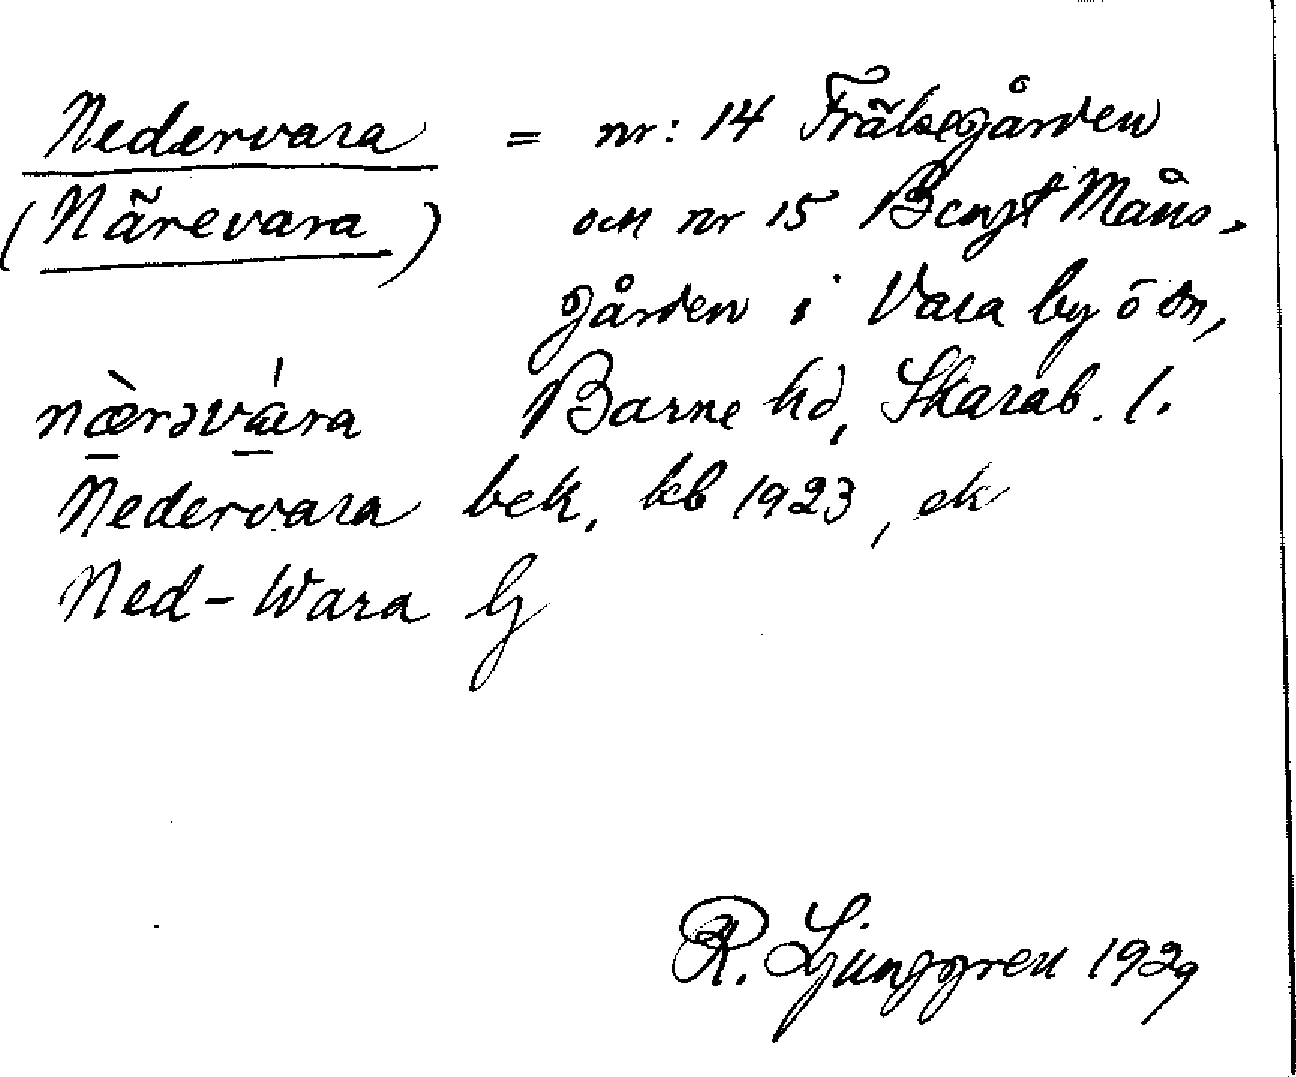 Nedervara = nr: 14 Frälsegården
(Närevara) och nr 15 Bengt Måns-
gården i Vara by o sn,
næ̀rəvára Barne hd, Skarab. l.
Nedervara bek. kb 1923, ek
Ned-Wara G
R. Ljunggren 1929